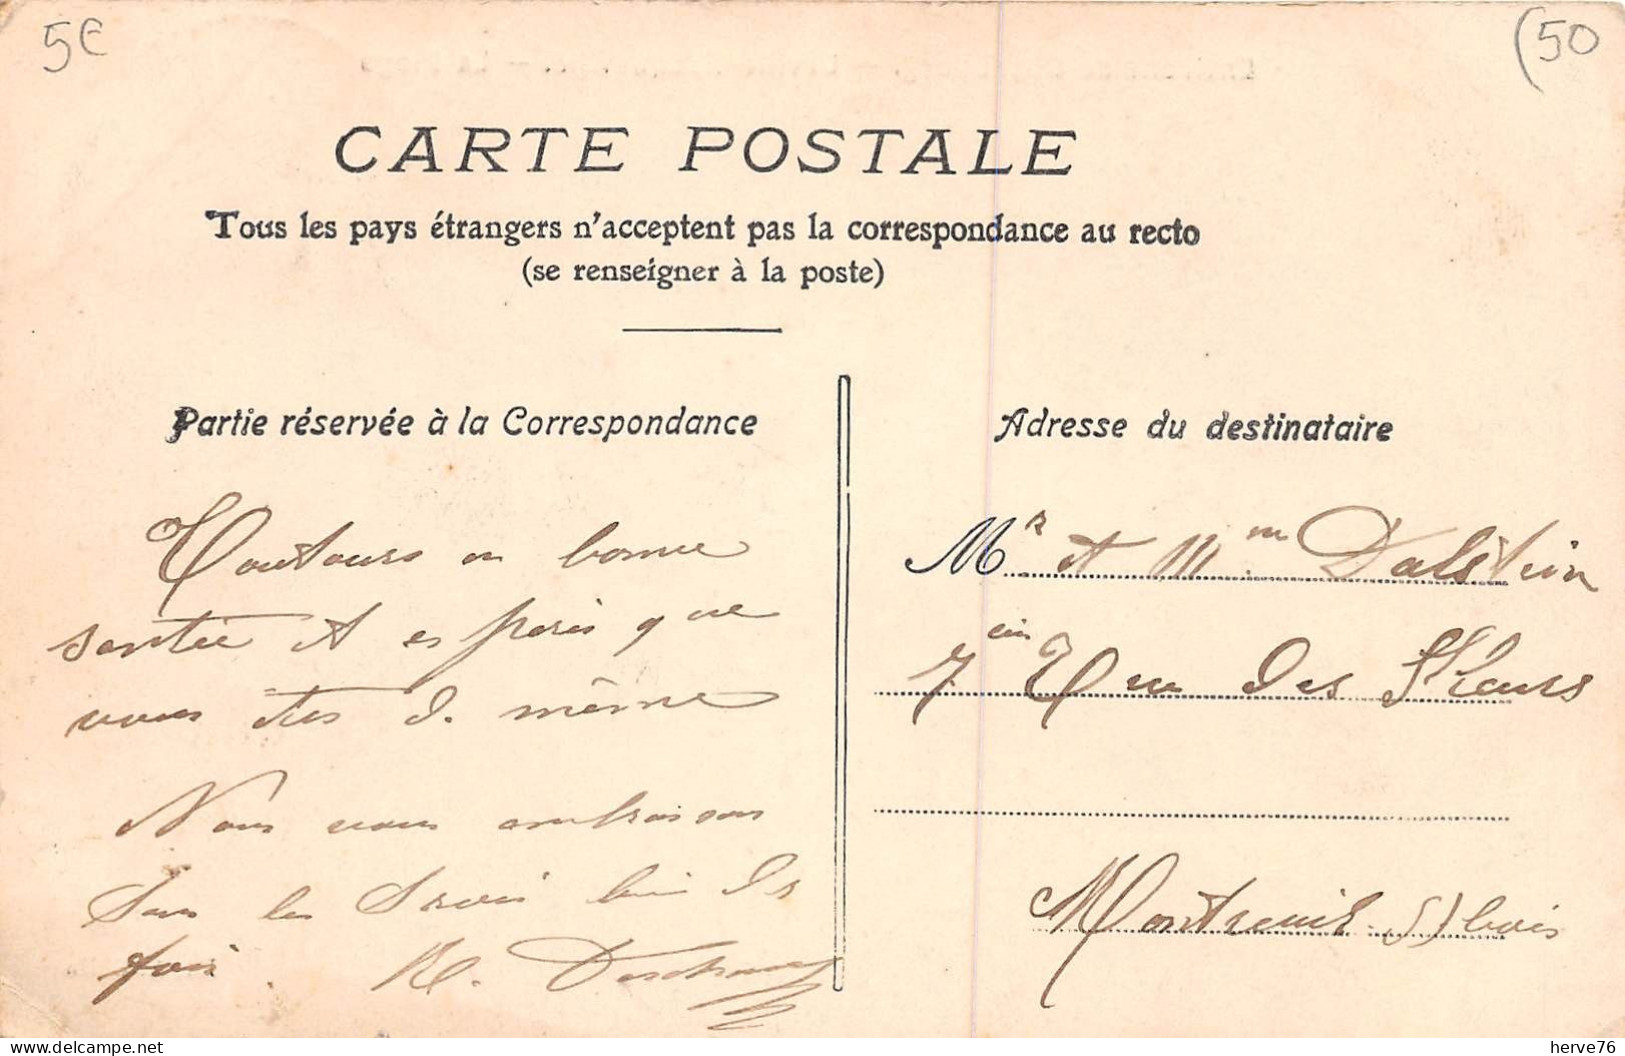 5€
(50
CARTE POSTALE
Tous les pays étrangers n'acceptent pas la correspondance au recto
(se renseigner à la poste)
Partie réservée à la Correspondance
Toutours en bonne
santée et espères que
vous êtes d. même
Nous vous embrassons
tous les bien des
fois. R.
Adresse du destinataire
Mr et Mm Dalstein
7 Rue des Fleurs
Montreuil s/bois
herve76